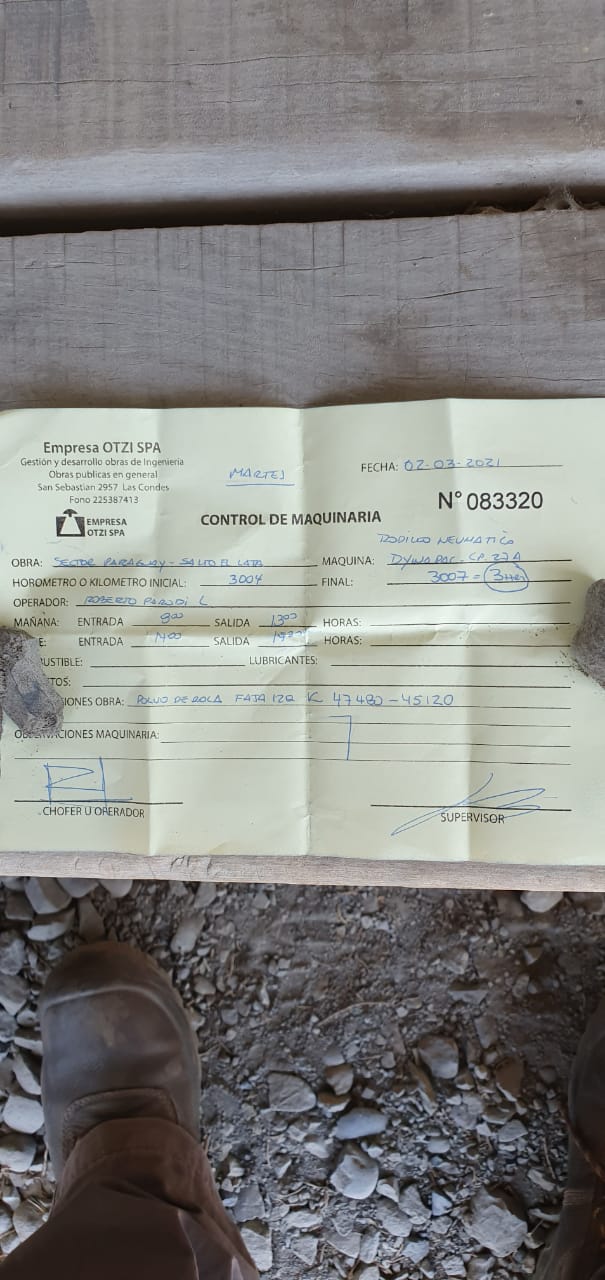 Empresa OTZI SPA
Gestión y desarrollo obras de Ingeniería
Obras publicas en general
San Sebastian 2957 Las Condes
Fono 225387413
EMPRESA
OTZI SPA
MARTES
FECHA: 02-03-2021
N° 083320
CONTROL DE MAQUINARIA
RODILLO NEUMATICO
OBRA: SECTOR PARAGUAY - SALTO EL LAJA MAQUINA: DYNAPAC - CP. 27A
HOROMETRO O KILOMETRO INICIAL: 3004 FINAL: 3007 = 3HRS
OPERADOR: ROBERTO PARODI L
MAÑANA: ENTRADA 8:00 SALIDA 13:00 HORAS:
E: ENTRADA 14:00 SALIDA HORAS:
USTIBLE: LUBRICANTES:
TOS:
IONES OBRA: POLVO DE ROCA FAJA IZQ K 47480 - 45120
OB ACIONES MAQUINARIA:
CHOFER U OPERADOR
SUPERVISOR